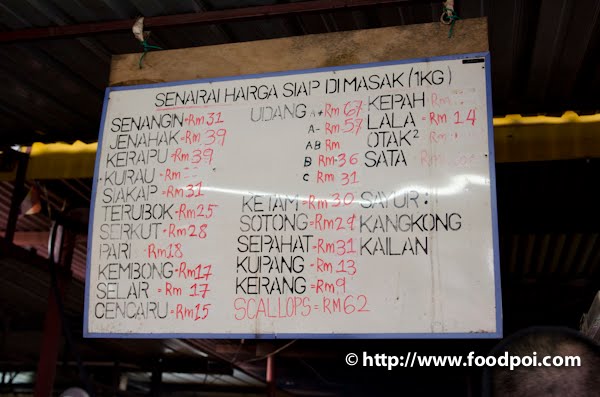 SENARAI HARGA SIAP DI MASAK (1KG)
SENANGIN=Rm 31
JENAHAK=Rm 39
KERAPU=Rm 39
KURAU=Rm
SIAKAP=Rm 31
TERUBOK=Rm25
SEIRKUT=Rm28
PARI Rm18
KEMBONG=Rm17
SELAR =Rm 17
CENCARU=Rm15
UDANG A+ Rm 67
A- Rm 57
AB Rm
B Rm-36
C Rm 31
KETAM=Rm 30
SOTONG=Rm29
SEPAHAT=Rm31
KUPANG =Rm 13
KERANG=Rm9
SCALLOPS=RM62
KEPAH Rm
LALA =Rm 14
OTAK² Rm
SATA
SAYUR:
KANGKONG
KAILAN
© http://www.foodpoi.com/